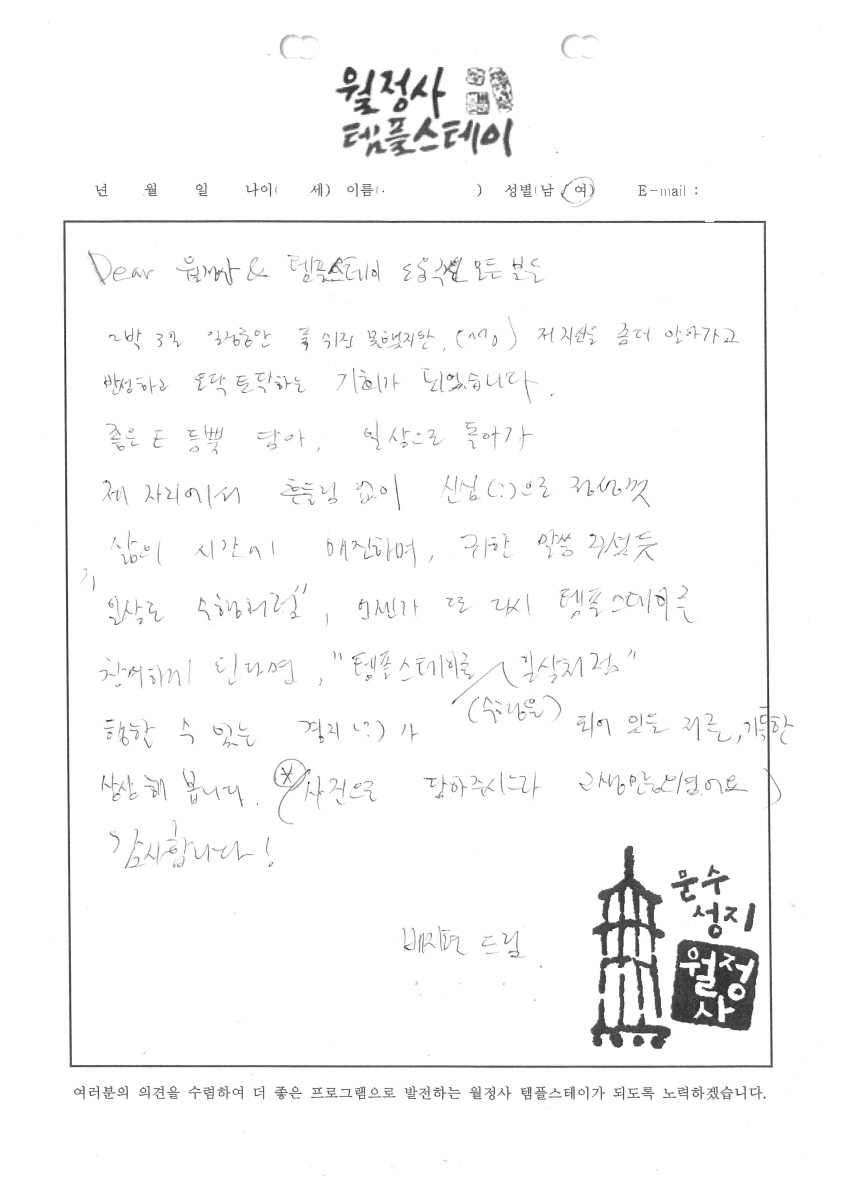 월정사
템플스테이
년 월 일 나이( 세) 이름( ) 성별(남, 여) E-mail :
Dear 월정사 & 템플스테이 모든 분들
2박 3일 일정동안 푹 쉬진 못했지만, 저 자신을 좀더 알아가고
반성하고 토닥토닥하는 기회가 되었습니다.
좋은 E 듬뿍 담아, 일상으로 돌아가
제 자리에서 흔들림 없이 신심(?)으로 정성껏
삶의 시간에 매진하며, 귀한 말씀 주셨듯
"일상도 수행처럼", 언젠가 또 다시 템플스테이를
참여하게 된다면, "템플스테이를 일상처럼"
(수행을)
행할 수 있는 경지(?)가 되어 있을 저를, 기특한
상상해 봅니다. (* 사진으로 담아주시느라 고생많으셨어요)
감사합니다!
드림
문수
성지
월정
사
여러분의 의견을 수렴하여 더 좋은 프로그램으로 발전하는 월정사 템플스테이가 되도록 노력하겠습니다.